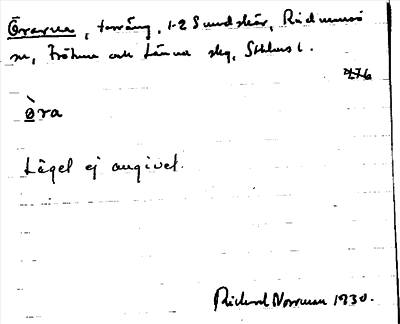 Örarna, torräng, 1-2 Sundskär, Rådmansö
sn, Fröhus och Länna skg, Sthlms l.
476
öra
Läget ej angivet.
Rickard Norrman 1930.